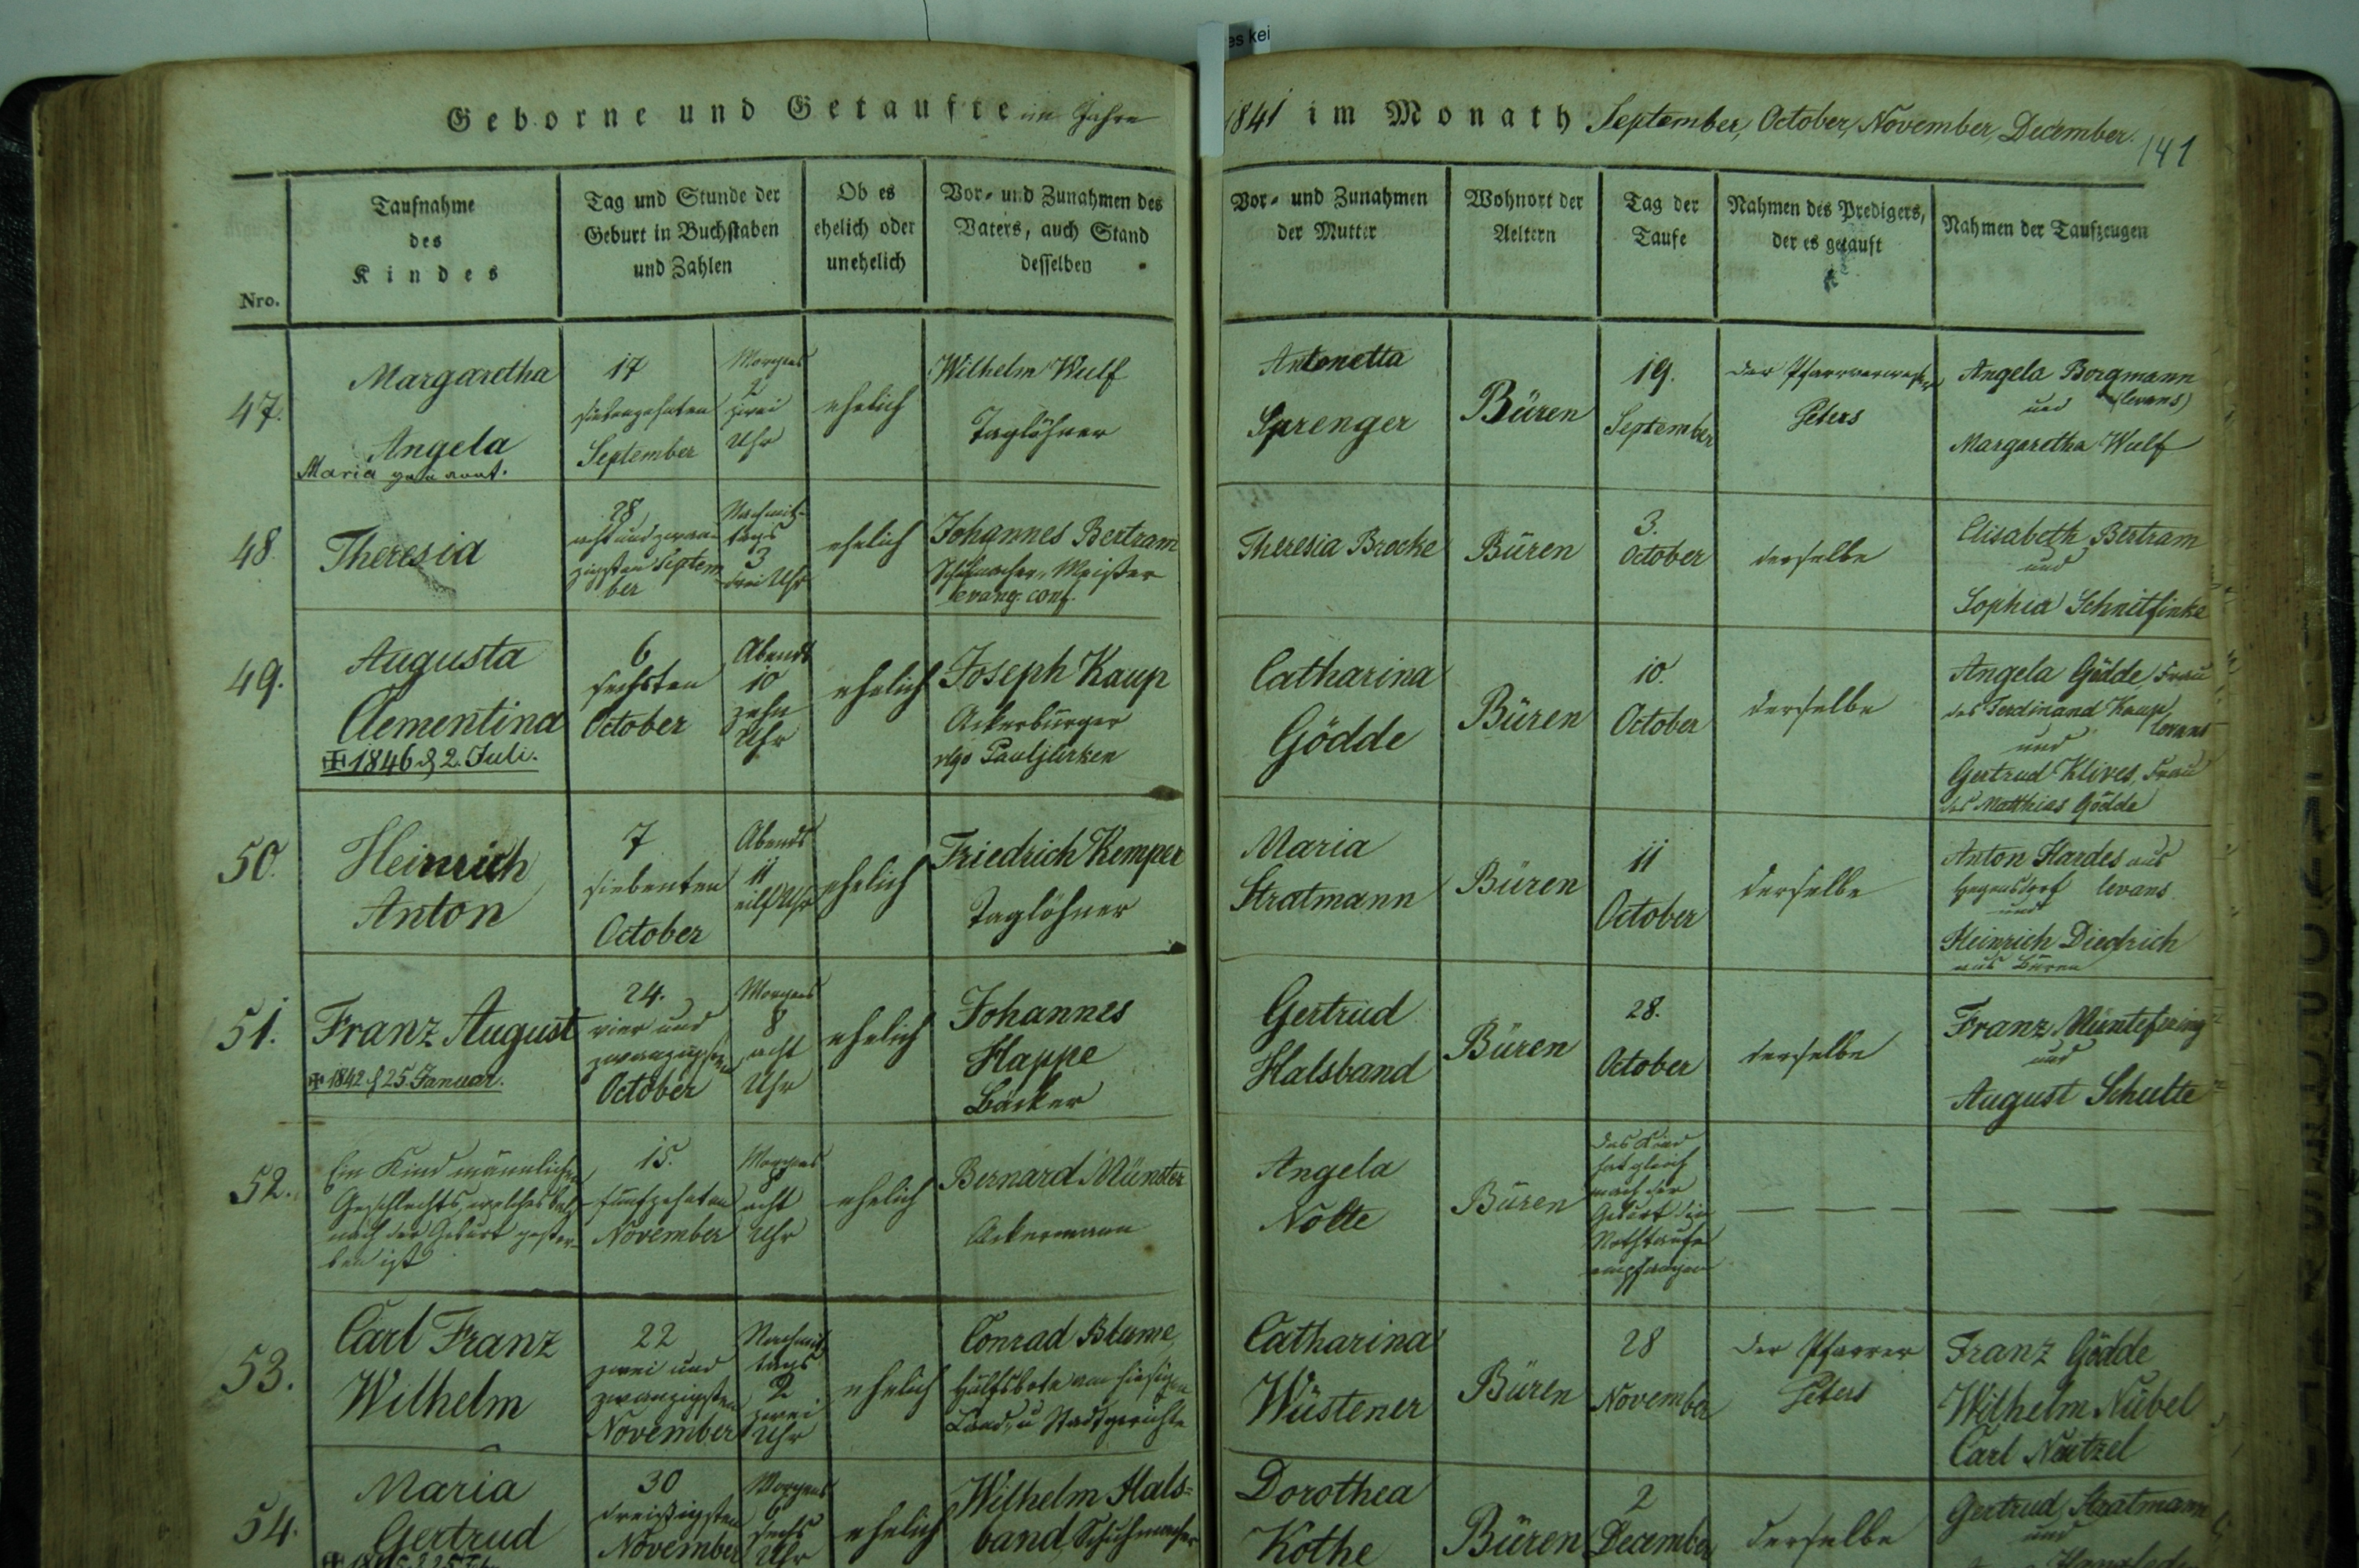 es kei
Geborne und Getaufte im Jahre
1841 im Monath September, October, November, December.
141
Nro.
Taufnahme
des
Kindes
Tag und Stunde der
Geburt in Buchstaben
und Zahlen
Ob es
ehelich oder
unehelich
Vor- und Zunahmen des
Vaters, auch Stand
desselben
Vor- und Zunahmen
der Mutter
Wohnort der
Aeltern
Tag der
Taufe
Nahmen des Predigers,
der es getauft
Nahmen der Taufzeugen
47.
Margaretha
Angela
Maria genannt.
17
siebenzehnten
September
Morgens
2
zwei
Uhr
ehelich
Wilhelm Wulf
Taglöhner
Antonetta
Sprenger
Büren
19.
September
der Pfarrverweser
Peters
Angela Borgmann
und (levans)
Margaretha Wulf
48.
Theresia
28
acht und zwan
zigsten Septem
ber
Nachmit-
tags
3
drei Uhr
ehelich
Johannes Bertram
Schuhmacher-Meister
evang. conf.
Theresia Brocke
Büren
3.
October
derselbe
Elisabeth Bertram
und
Sophia Schnitfinke
49.
Augusta
Clementina
1846 d 2. Juli.
6
sechsten
October
Abends
10
zehn
Uhr
ehelich
Joseph Kaup
Ackerbürger
vlgo Pauljürken
Catharina
Gödde
Büren
10.
October
derselbe
Angela Gödde Frau
des Ferdinand Kaup
levans
und
Gertrud Klives Frau
des Matthias Gödde
50.
Heinrich
Anton
7
siebenten
October
Abends
11
eilf Uhr
ehelich
Friedrich Kemper
Taglöhner
Maria
Stratmann
Büren
11
October
derselbe
Anton Hardes aus
Hegensdorf levans
und
Heinrich Diedrich
aus Büren
51.
Franz August
1842 d 25. Januar.
24.
vier und
zwanzigsten
October
Morgens
8
acht
Uhr
ehelich
Johannes
Happe
Bäcker
Gertrud
Halsband
Büren
28.
October
derselbe
Franz Müntefering
und
August Schulte
52.
Ein Kind männlichen
Geschlechts, welches bald
nach der Geburt gestor-
ben ist
15.
funfzehnten
November
Morgens
8
acht
Uhr
ehelich
Bernard Münster
Ackermann
Angela
Nolte
Büren
das Kind
hat gleich
nach der
Geburt die
Nothtaufe
empfangen
53.
Carl Franz
Wilhelm
22
zwei und
zwanzigsten
November
Nachmit
tags
2
zwei
Uhr
ehelich
Conrad Blume
Hülfsbote am hiesigen
Land- u Stadtgerichte
Catharina
Wüstener
Büren
28
November
der Pfarrer
Peters
Franz Gödde
Wilhelm Nübel
Carl Nützel
54.
Maria
Gertrud
30
dreißigsten
November
Morgens
6
sechs
Uhr
ehelich
Wilhelm Hals-
band, Schuhmacher
Dorothea
Kothe
Büren
2
December
derselbe
Gertrud Stratmann
und